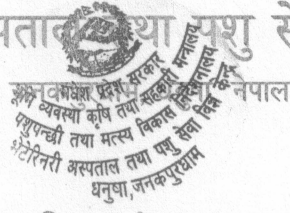 पताल तथा पशु से
जनकपुरधाम नेपाल
मधेश प्रदेश सरकार
भूमि व्यवस्था कृषि तथा सहकारी मन्त्रालय
पशुपन्छी तथा मत्स्य विकास निर्देशनालय
भेटेरिनरी अस्पताल तथा पशु सेवा विज्ञ केन्द्र
धनुषा, जनकपुरधाम